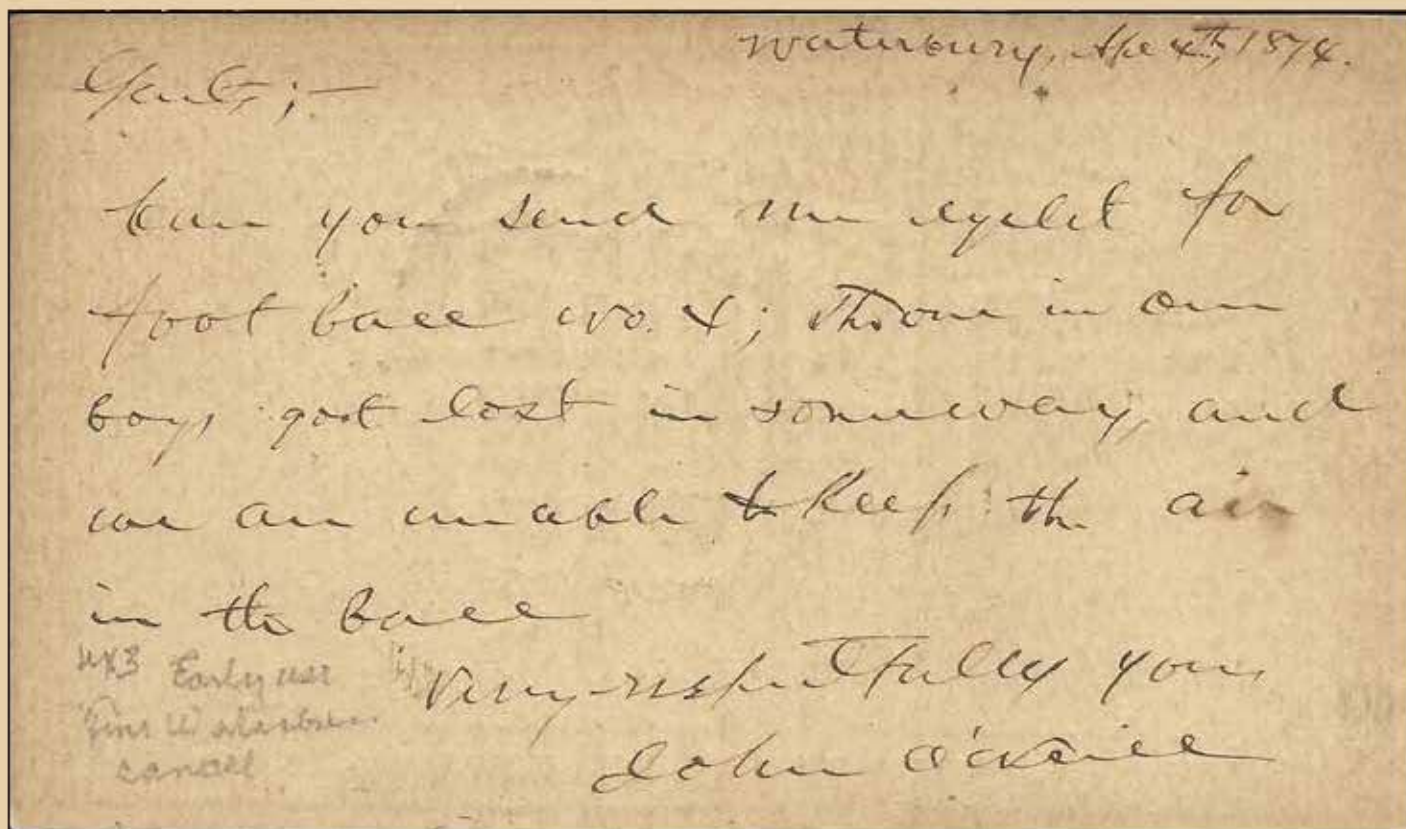 Waterbury, Apl 4th, 1874.
Gents;—
Can you send me eyelet for
foot ball No. 4; the one in our
boys got lost in someway, and
we are unable to keep the air
in the ball
Very respectfully yours
John O'Neill
UX3 Early use
Fine Waterbury
cancel